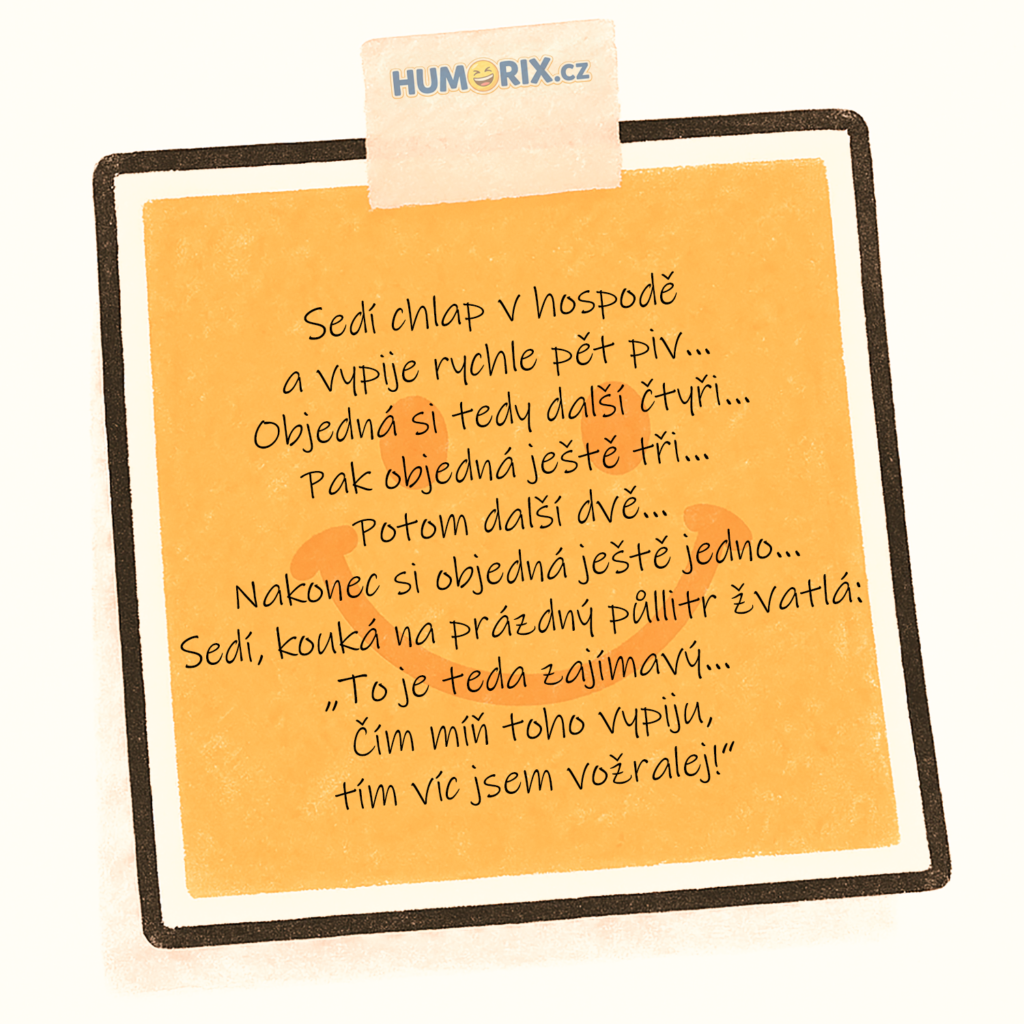 HUMORIX.cz
Sedí chlap v hospodě
a vypije rychle pět piv...
Objedná si tedy další čtyři...
Pak objedná ještě tři...
Potom další dvě...
Nakonec si objedná ještě jedno...
Sedí, kouká na prázdný půllitr žvatlá:
„To je teda zajímavý...
Čím míň toho vypiju,
tím víc jsem vožralej!“